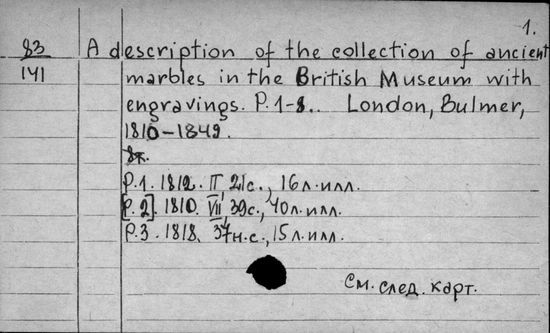 1.
83
141
A description of the collection of ancient
marbles in the British Museum with
engravings. P. 1-8.. London, Bulmer,
1810-1849.
8т.
P.1. 1812. II, 21с., 16 л. илл.
[P. 2]. 1810. VII, 39с., 40 л. илл.
P.3. 1818. 37 н.с., 15 л. илл.
См. след. карт.